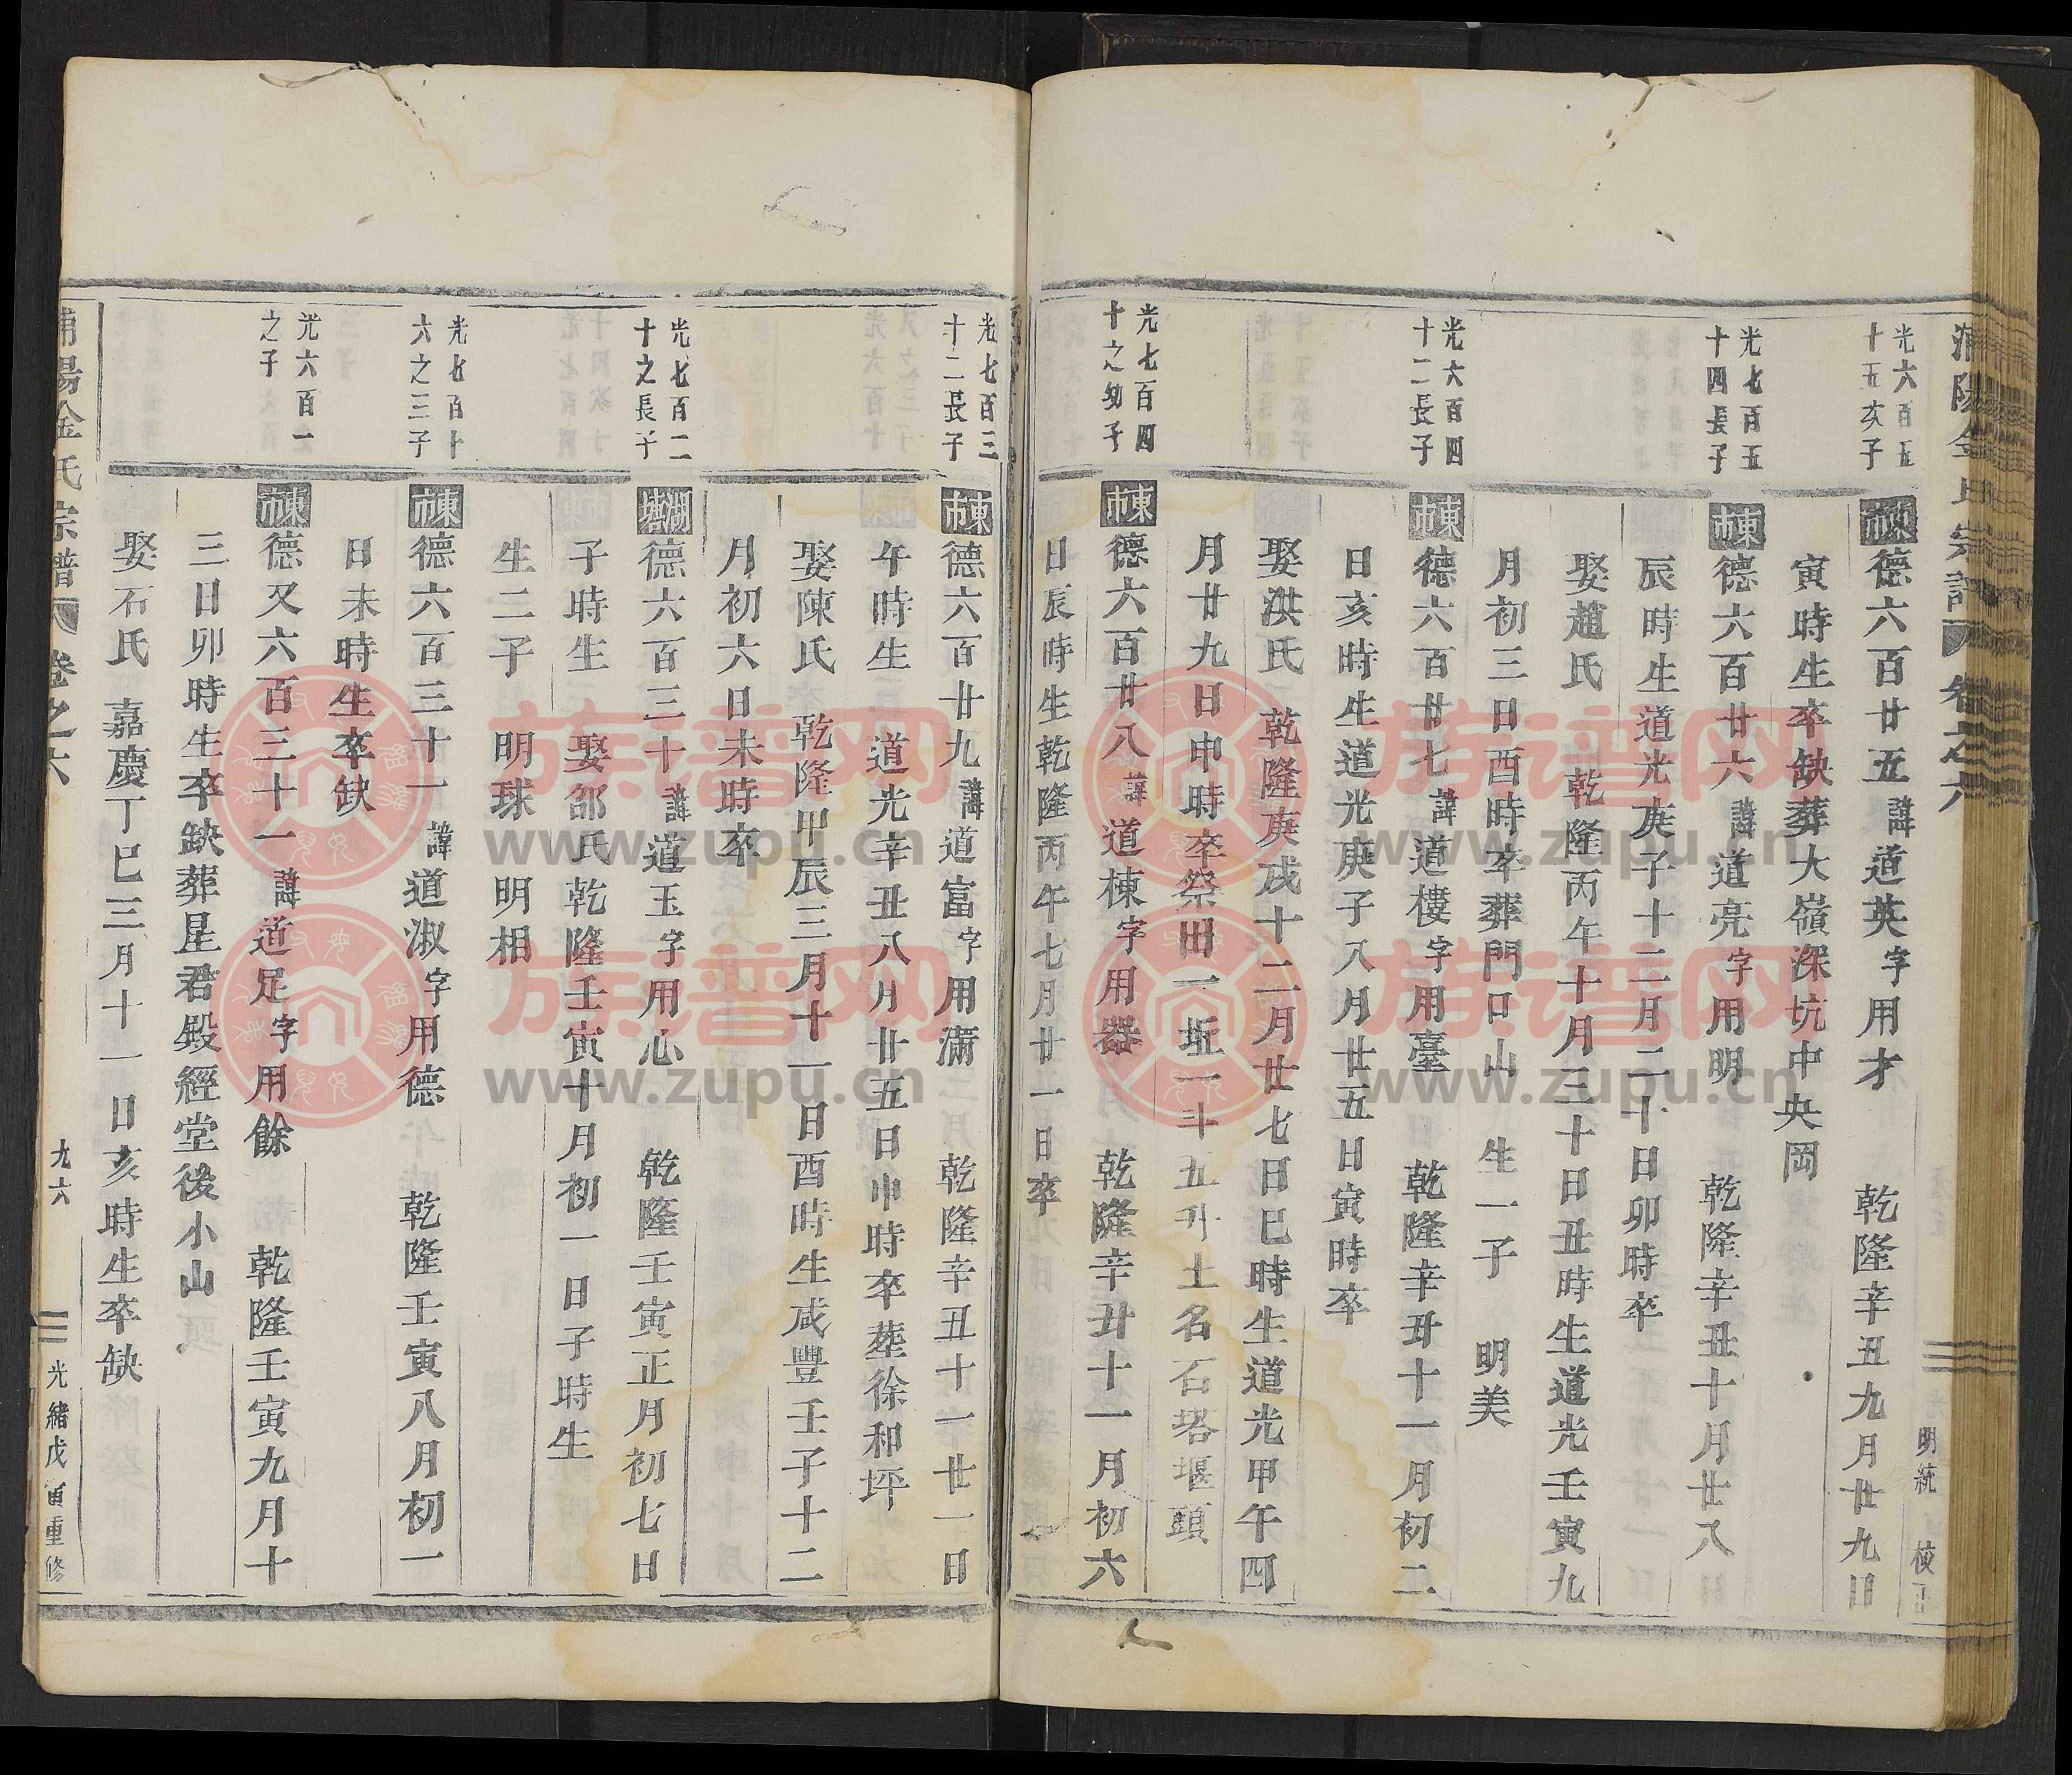 浦陽金氏宗譜
卷之六
明統
校正
光六百五
十五次子
東市
德六百廿五諱道英字用才 乾隆辛丑九月廿九日
寅時生卒缺葬大嶺深坑中央岡
光七百五
十四長子
東市
德六百廿六諱道亮字用明 乾隆辛丑十月廿八日
辰時生道光庚子十二月二十日卯時卒
娶趙氏 乾隆丙午十月三十日丑時生道光壬寅九
月初三日酉時卒葬門口山 生一子 明美
光六百四
十二長子
東市
德六百廿七諱道樓字用臺 乾隆辛丑十一月初二
日亥時生道光庚子八月廿五日寅時卒
娶洪氏 乾隆庚戌十二月廿七日巳時生道光甲午四
月廿九日申時卒祭田一坵一斗五升土名石塔堰頭
光七百四
十之幼子
東市
德六百廿八諱道棟字用器 乾隆辛丑十一月初六
日辰時生乾隆丙午七月廿一日卒
光七百三
十二長子
東市
德六百廿九諱道富字用滿 乾隆辛丑十一廿一日
午時生 道光辛丑八月廿五日申時卒葬徐和坪
娶陳氏 乾隆甲辰三月十一日酉時生咸豐壬子十二
月初六日未時卒
光七百二
十之長子
湖塘
德六百三十諱道玉字用心 乾隆壬寅正月初七日
子時生 娶邵氏乾隆壬寅十月初一日子時生
生二子 明球 明相
光七百十
六之三子
東市
德六百三十一諱道淑字用德 乾隆壬寅八月初一
日未時生卒缺
光六百一
之子
東市
德又六百三十一諱道足字用餘 乾隆壬寅九月十
三日卯時生卒缺葬星君殿經堂後小山
娶石氏 嘉慶丁巳三月十一日亥時生卒缺
浦陽金氏宗譜
卷之六
九六
光緒戊寅重修
族谱网
www.zupu.cn
族谱网
www.zupu.cn
族谱网
www.zupu.cn
族谱网
www.zupu.cn